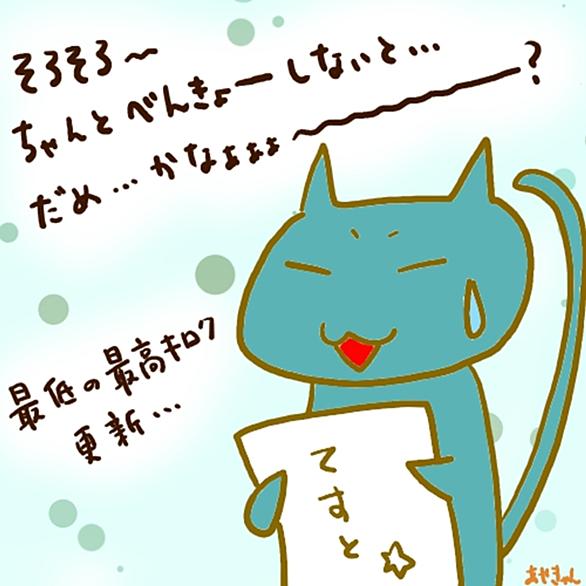 そろそろ～
ちゃんとべんきょーしないと…
だめ…かなぁぁぁ～～～?
最低の最高キロク
更新…
てすと☆
あやきゃん